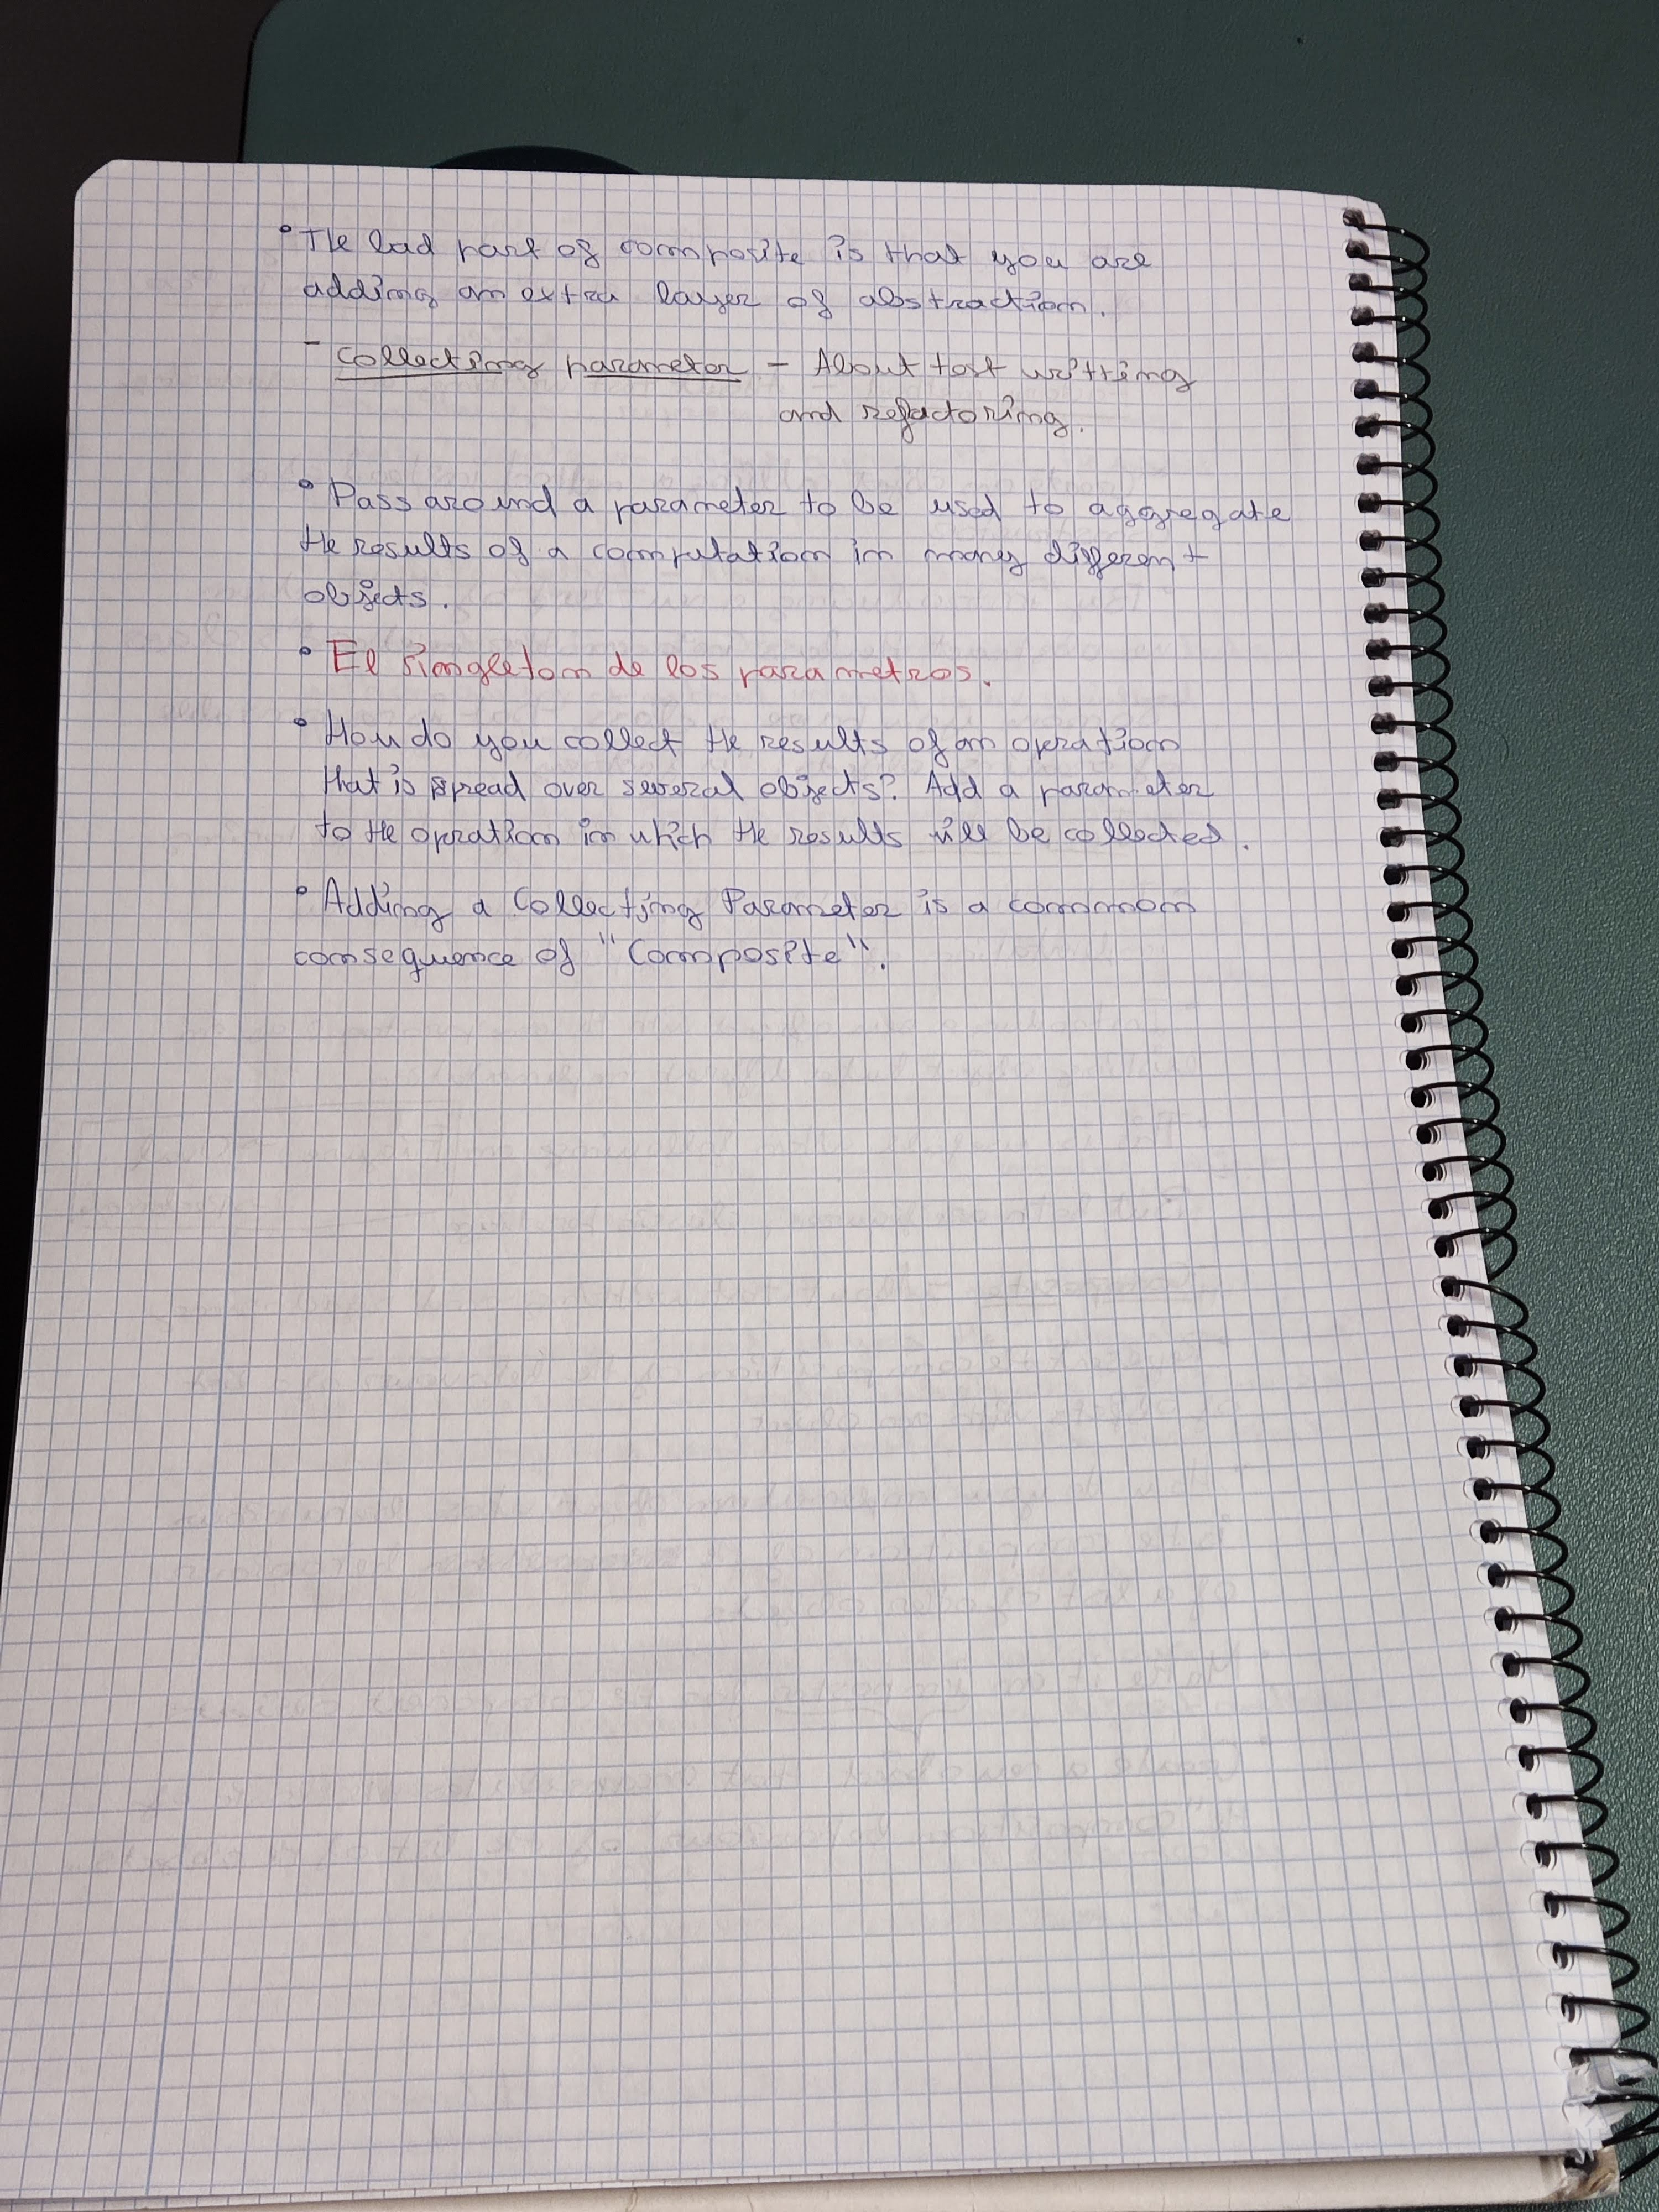 • The bad part of composite is that you are
adding an extra layer of abstraction.
- Collecting parameter - About test writting
and refactoring.
• Pass around a parameter to be used to aggregate
the results of a computation in many different
objects.
• El singleton de los parametros.
• How do you collect the results of an operation
that is spread over several objects? Add a parameter
to the operation in which the results will be collected.
• Adding a Collecting Parameter is a common
consequence of "Composite".